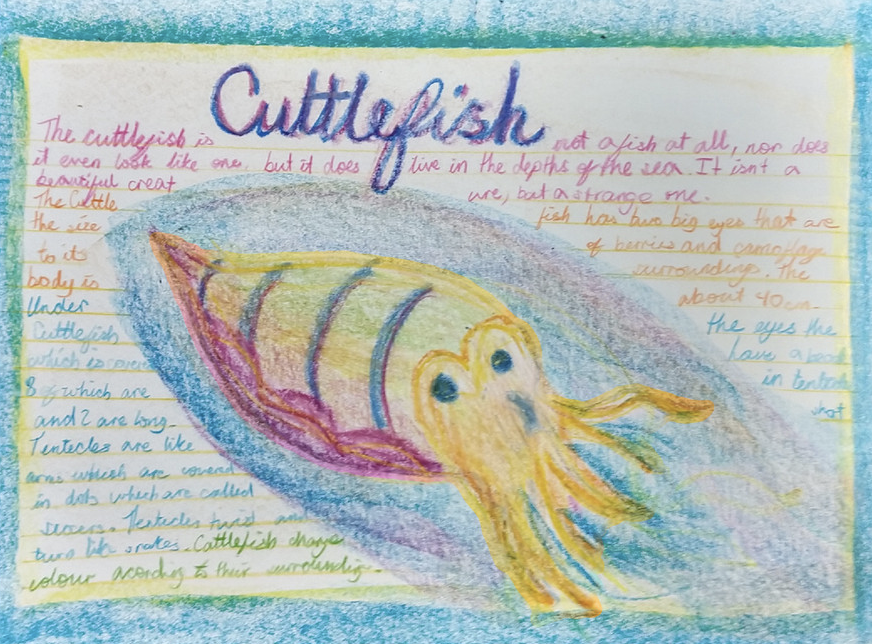 Cuttlefish
The cuttlefish is not a fish at all, nor does
it even look like one. but it does live in the depths of the sea. It isn't a
beautiful creat ure, but a strange one.
The Cuttle fish has two big eyes that are
the size of berries and camoflage
to its surroundings. The
body is about 40cm.
Under the eyes the
Cuttlefish have a beak
which is covered in tentacles
8 of which are short
and 2 are long.
Tentecles are like
arms which are coverd
in dots which are called
sucers. Tentecles twist and
turn like snakes. Cattlefish change
colour acording to their surroundigs.